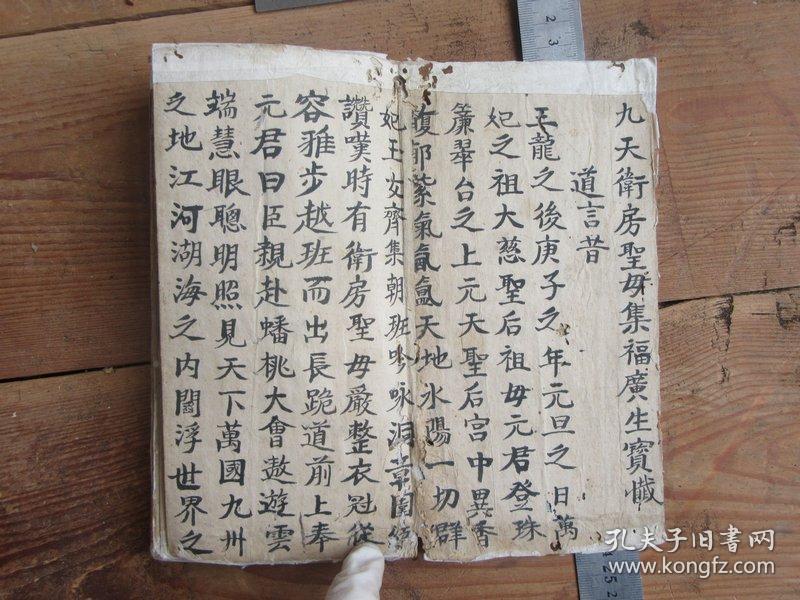 九天衛房聖母集福廣生寶懺
道言昔
玉龍之後庚子之年元旦之日萬
妃之祖大慈聖后祖母元君登珠
簾翠台之上元天聖后宮中異香
馥郁紫氣氤氳天地氷陽一切群
妃玉女齊集朝班吟咏洞章圍繞
讚嘆時有衛房聖母嚴整衣冠從
容雅步越班而出長跪道前上奉
元君曰臣親赴蟠桃大會遨遊雲
端慧眼聰明照見天下萬國九州
之地江河湖海之内閻浮世界之
2
3
25
孔夫子旧书网
www.kongfz.com